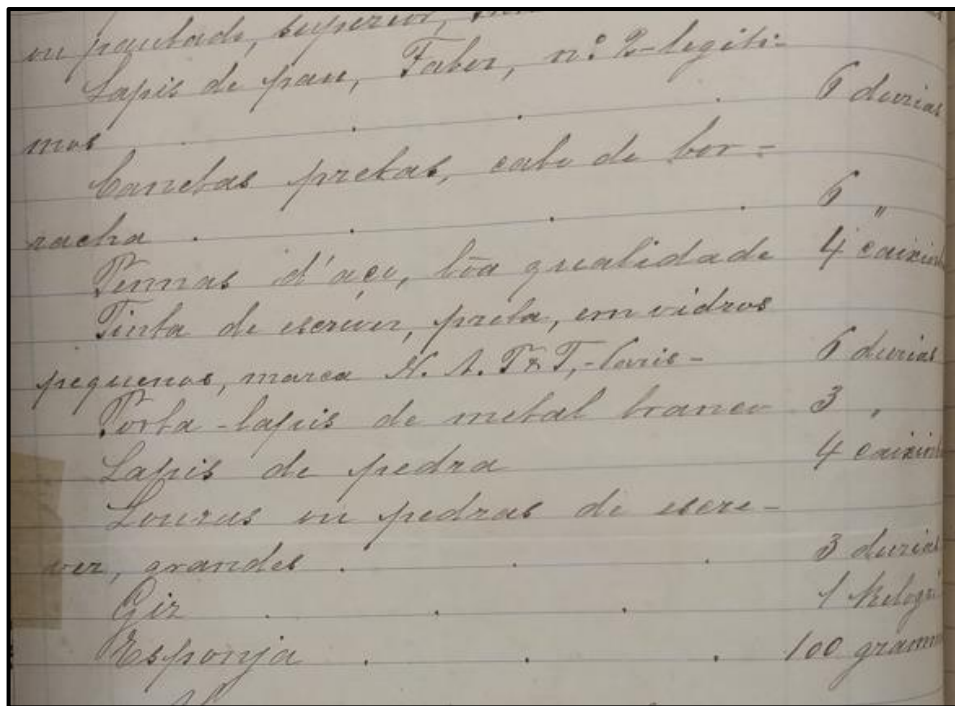 ou pautado, superior,
Lapis de pau, Faber, nº 2-legiti-
mos . . . 6 duzias
Canetas pretas, cabo de bor-
racha . . . 6 "
Pennas d'aço, bôa qualidade 4 caixinh
Tinta de escrever, preta, em vidros
pequenos, marca N. A. T & T,-Paris- 6 duzias
Porta-lapis de metal branco 3 "
Lapis de pedra 4 caixinh
Louzas ou pedras de escre-
ver, grandes . . . 3 duzias
Giz . . . 1 Kilogr
Esponja . . . 100 gramm